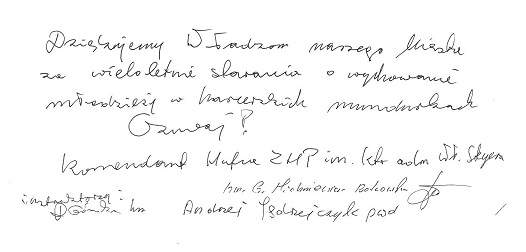 Dziękujemy Władzom naszego Miasta
za wieloletnie starania o wychowanie
młodzieży w harcerskich mundurkach
Czuwaj!
Komendant Hufca ZHP im.
hm. G.
instruktorzy:
hm Andrzej Jędrzejczyk pwd